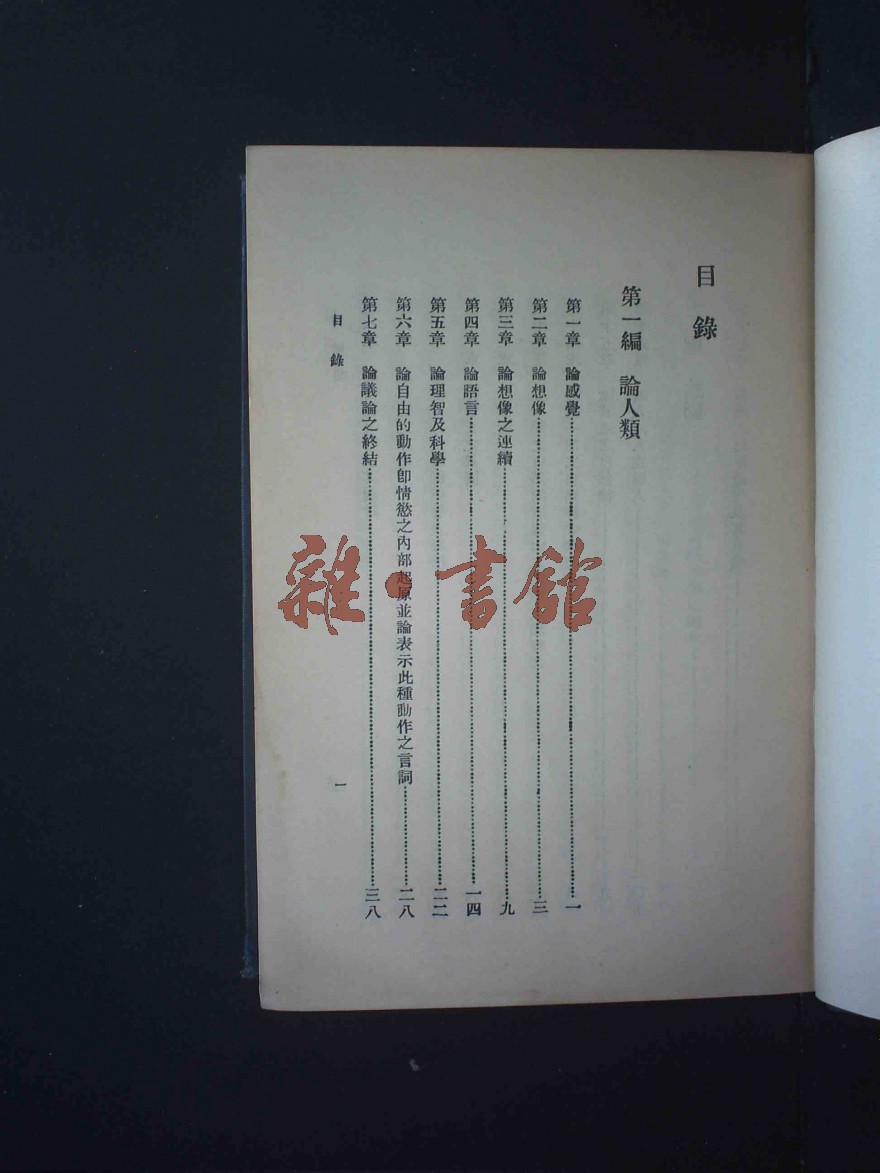 目錄
第一編　論人類
第一章　論感覺……一
第二章　論想像……三
第三章　論想像之連續……九
第四章　論語言……一四
第五章　論理智及科學……二二
第六章　論自由的動作卽情慾之內部起原並論表示此種動作之言詞……二八
第七章　論議論之終結……三八
目錄
一
雜·書館